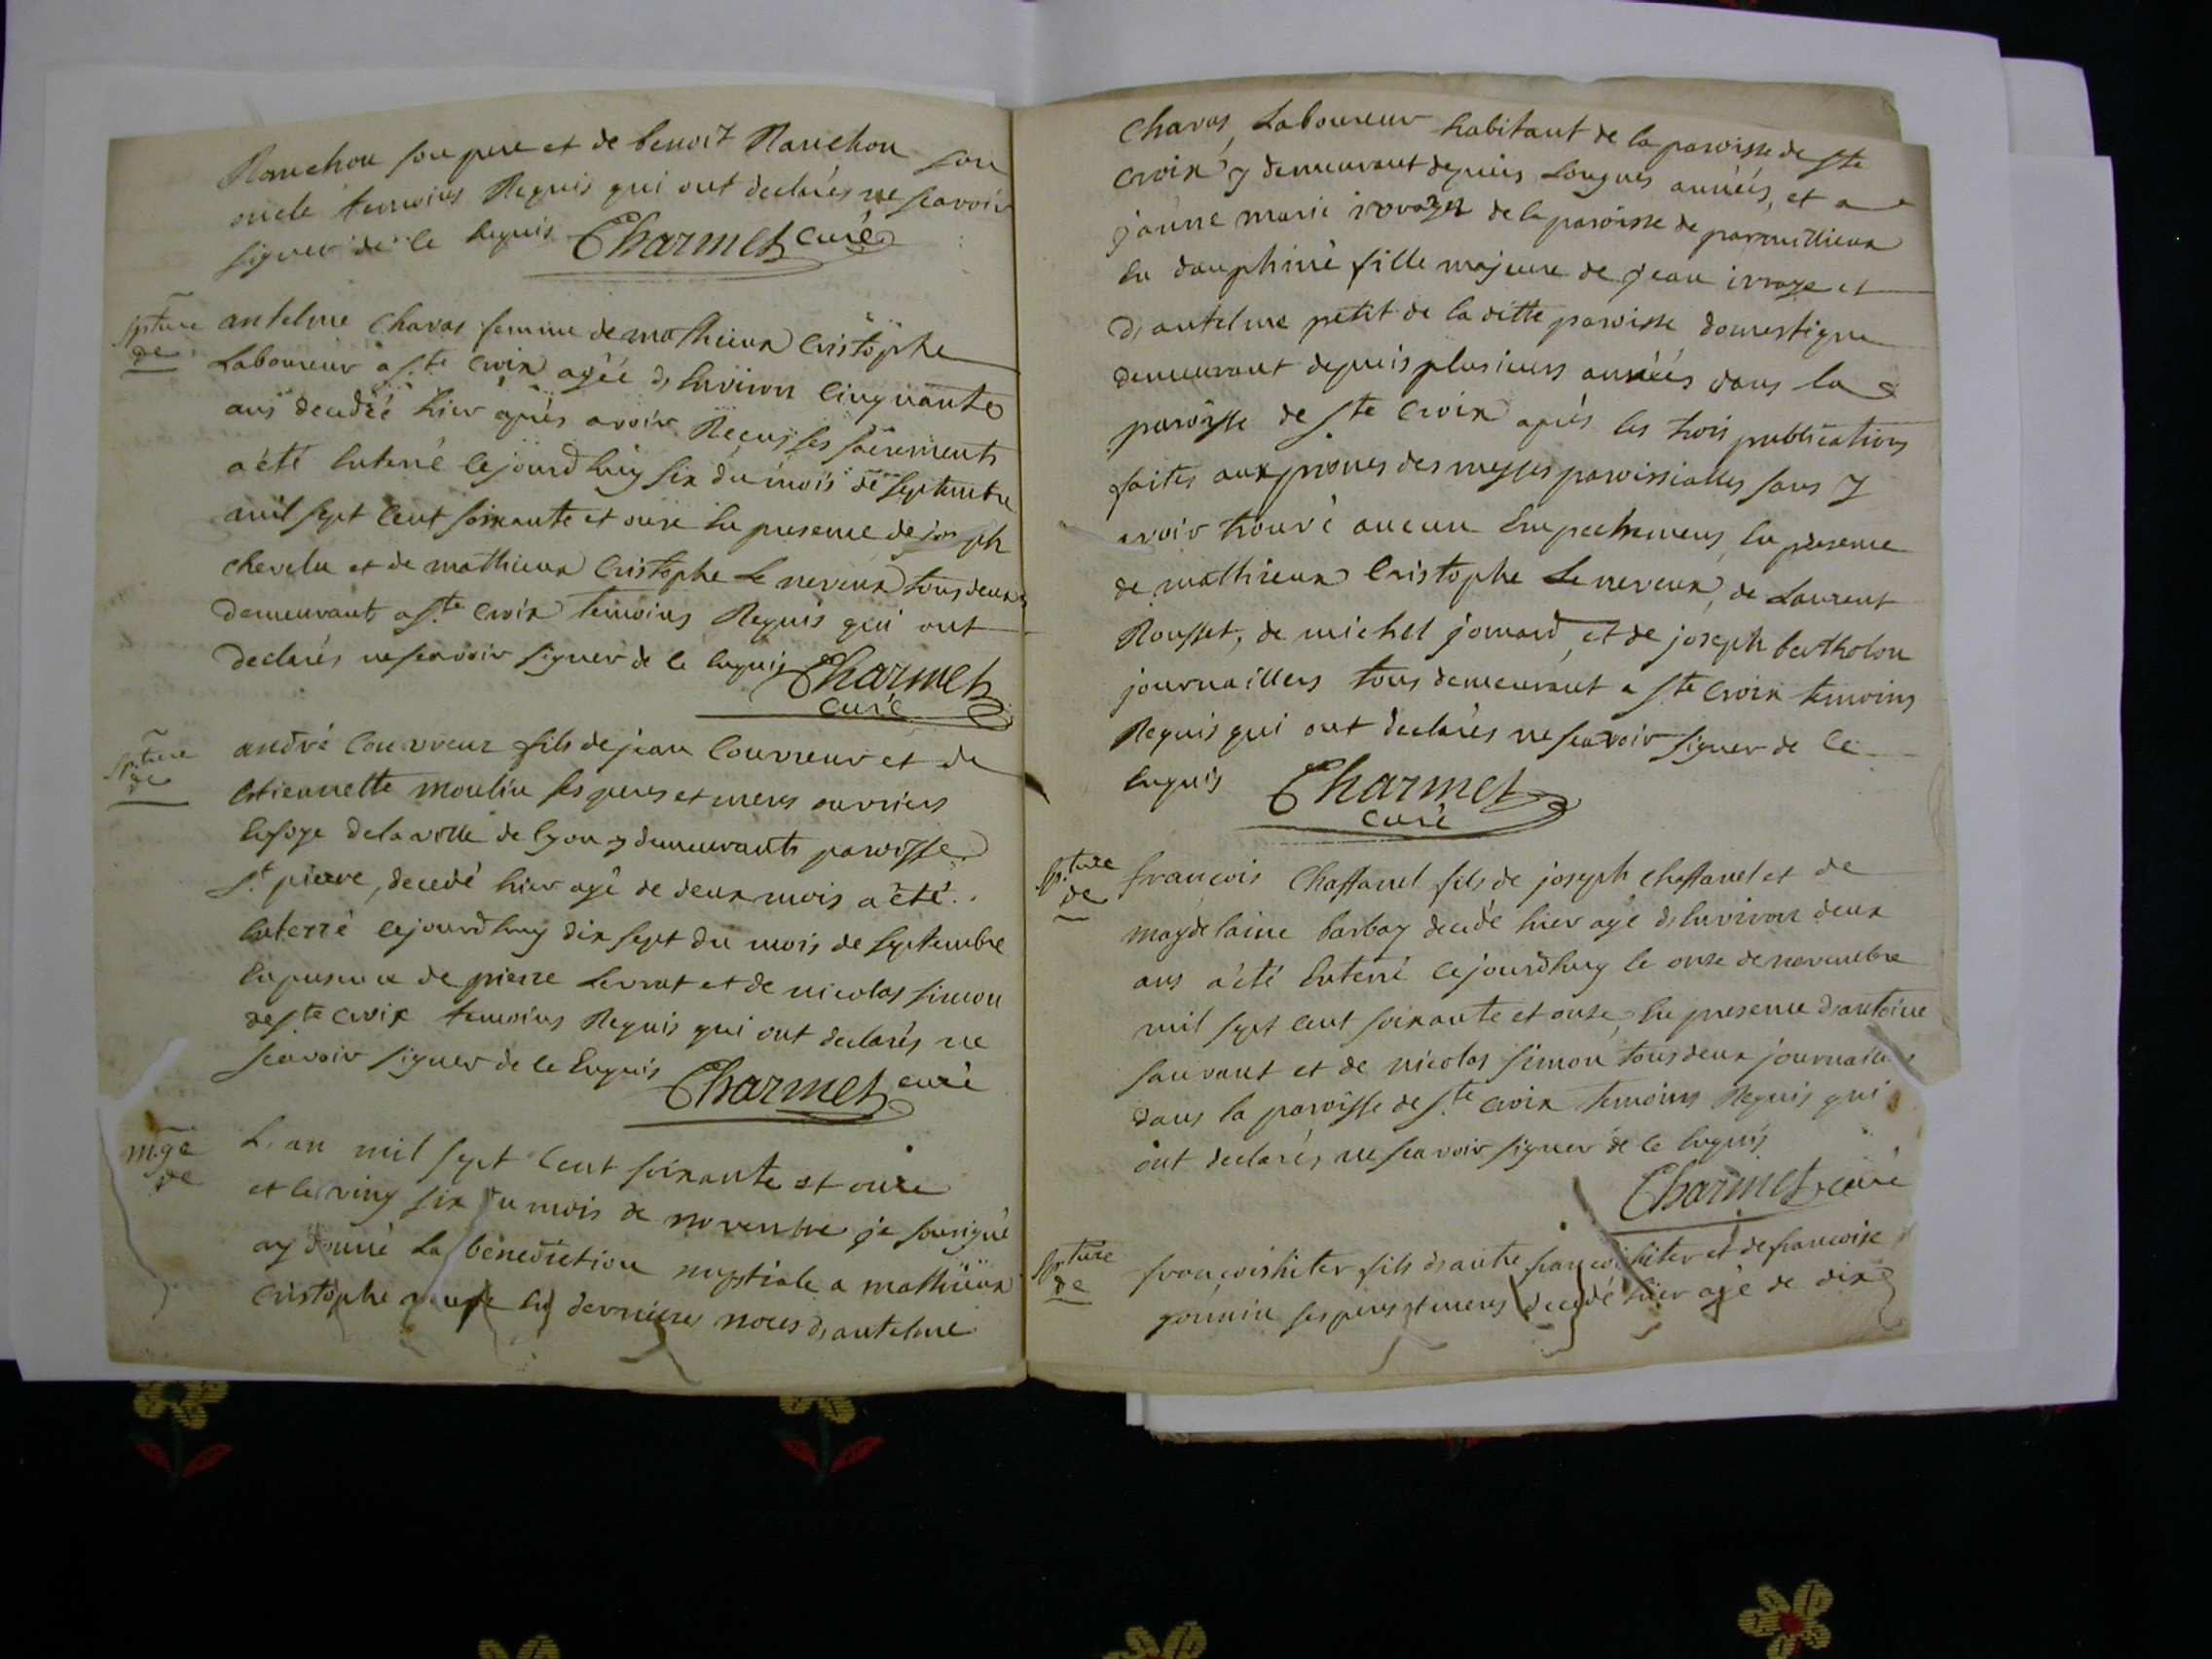 Ranchon son pere et de benoit Ranchon son
oncle temoins Requis qui ont declarés ne scavoir
signer de ce enquis Charmet curé
spture
de
antelme Chavas femme de mathieux Cristophe
Laboureur a ste Croix agéé d'environ cinquante
ans decedéé hier aprés avoir Reçus ses sacrements
a été enterré cejourd'huy six du mois de septembre
mil sept cent soixante et onze en presence de joseph
chevelu et de mathieux Cristophe Le neveux tous deux
demeurant a ste Croix temoins Requis qui ont
declarés ne scavoir signer de ce enquis Charmet
curé
spture
de
andré Couvreur fils de jean Couvreur et de
Estiennette moulin ses peres et meres ouvriers
en soye de la ville de lyon y demeurants paroisse
st pierre, decedé hier agé de deux mois a été
enterré cejourd'huy dix sept du mois de septembre
en presence de pierre Levrat et de nicolas simon
de ste Croix temoins Requis qui ont declarés ne
scavoir signer de ce Enquis Charmet curé
mge
de
L'an mil sept cent soixante et onze
et le ving six du mois de novembre je sousigné
ay donné La bénediction nuptiale a mathieux
Cristophe en dernieres noces d'antelme
Chavas, Laboureur habitant de la paroisse de ste
Croix y demeurant depuis Longues années, et a
jeanne marie de la paroisse de parmillieux
en dauphiné fille majeure de jean ivraye et
d'antelme petit de la ditte paroisse domestique
demeurant depuis plusieurs années dans la
paroisse de ste Croix aprés les trois publications
faites aux prones des messes paroissialles sans y
avoir trouvé aucun Empechemens en presence
de mathieux Cristophe Le neveux, de Laurent
Rousset, de michel jomard, et de joseph bertholon
journailliers tous demeurant a ste Croix temoins
Requis qui ont declarés ne scavoir signer de ce
enquis Charmet
curé
spture
de
françois Chaffanel fils de joseph Chaffanel et de
magdelaine barbay decedé hier agé d'environ deux
ans a été Enterré cejourd'huy le onze de novembre
mil sept cent soixante et onze, En presence d'antoine
sauvant et de nicolas simon tous deux
dans la paroisse de ste Croix temoins Requis qui
ont declarés ne scavoir signer de ce enquis
Charmet curé
spture
de
françois hiter fils d'autre françois hiter et de francoise
ses peres et meres decedé hier agé de dix